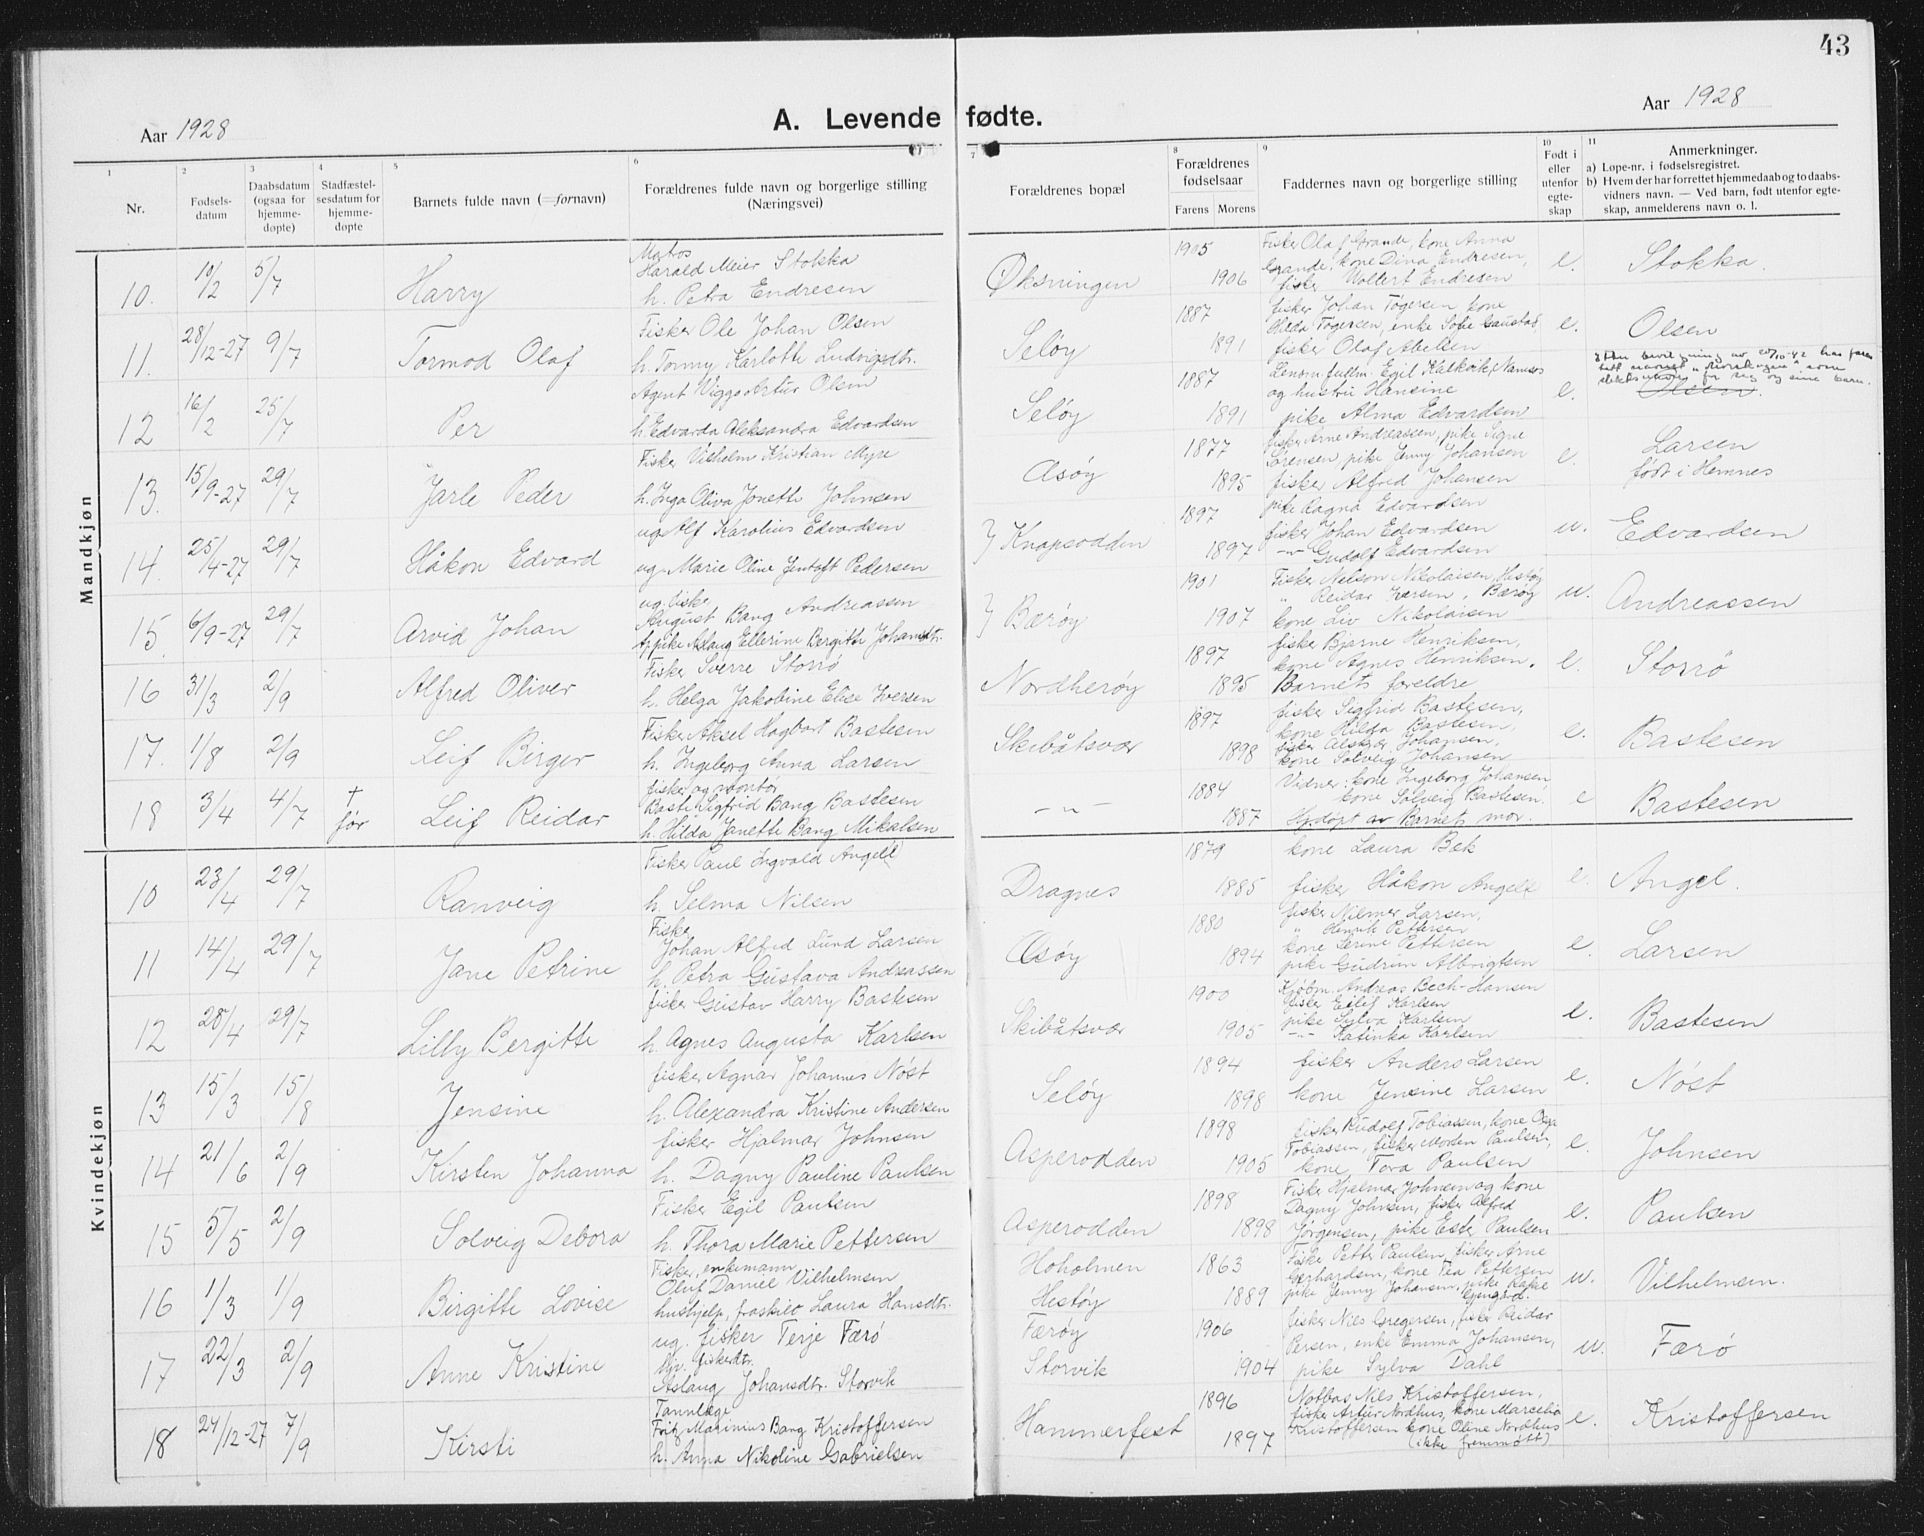 43
Aar 1928
A. Levende fødte.
Aar 1928
1
Nr.
2
Fødsels-
datum
3
Daabsdatum
(ogsaa for
hjemme-
døpte)
4
Stadfæstel-
sesdatum for
hjemme-
døpte
5
Barnets fulde navn (= fornavn)
6
Forældrenes fulde navn og borgerlige stilling
(Næringsvei)
7
Forældrenes bopæl
8
Forældrenes
fødselsaar
Farens Morens
9
Faddernes navn og borgerlige stilling
10
Født i
eller
utenfor
egte-
skap
11
Anmerkninger.
a) Løpe-nr. i fødselsregistret.
b) Hvem der har forrettet hjemmedaab og to daabs-
vidners navn. — Ved barn, født utenfor egte-
skap, anmelderens navn o. l.
Mandkjøn
10. 10/2 5/7 Harry
Matros
Harald Meier Stokka
h. Petra Endresen
Øksningen 1905 1906
Fisker Olaf Grande, kone Anna
Grande, kone Dina Endresen,
fisker Vollert Endresen
e. Stokka.
11. 28/12-27 9/7 Tormod Olaf
Fisker Ole Johan Olsen
h. Tonny Karlotte Ludvigsdtr.
Seløy 1887 1891
fisker Johan Tøgersen kone
Hilda Tøgersen, enke Sofie Gaustad
fisker Olaf Abelsen
e. Olsen
12 16/2 25/7 Per
Agent Viggo Artur Olsen
h. Edvarda Aleksandra Edvardsen
Seløy 1887 1891
og hustru Hansine
pike Alma Edvardsen
e. Olsen.
13. 15/9-27 29/7 Jarle Peder
Fisker Vilhelm Kristian Myre
h. Inga Oliva Jonette Johnsen
Åsøy 1877 1895
fisker Arne Andreassen, pike Signe
Sørensen, pike Jenny Johansen
fisker Alfred Johansen
e. Larsen
født i Hemnes
14. 25/4-27 29/7 Håkon Edvard
ug. Alf Karolius Edvardsen
ug. Marie Oline Jentoft Pedersen
} Knapsodden 1897 1897
pike Ragna Edvardsen
fisker Johan Edvardsen
-"- Gudolf Edvardsen
u. Edvardsen
15. 6/9-27 29/7 Arvid Johan
ug. fisker
August Bang Andreassen
pike Aslaug Ellerine Bergitte Johansdtr.
} Bærøy 1901 1907
Fisker Nelson Nikolaisen, Hestøy
" Reidar Larsen, Bærøy
kone Liv Nikolaisen
u. Andreassen
16 31/3 2/9 Alfred Oliver
Fisker Sverre Storrø
h. Helga Jakobine Elise Iversen
Nordherøy 1897 1895
fisker Bjarne Henriksen,
kone Agnes Henriksen.
Barnets foreldre
e. Storrø
17. 1/8 2/9 Leif Birger
Fisker Aksel Hagbart Bastesen
h. Ingeborg Anna Larsen
Skibåtsvær 1897 1898
fisker Sigfrid Bastesen,
kone Hilda Bastesen,
fisker Johansen,
kone Solveig Johansen
e. Bastesen
18 3/4 4/7 † før Leif Reidar
fisker og montør
Baste Sigfrid Bang Bastesen
h. Hilda Janette Bang Mikalsen
-"- 1884 1887
Vidner: kone Ingeborg Johansen
kone Solveig Bastesen.
Hjdøpt av Barnets mor.
e Bastesen
Kvindekjøn
10 23/4 29/7 Ranveig
Fisker Paul Ingvald Angell
h. Selma Nilsen
Dragnes 1879 1885
kone Laura Bek
fisker Håkon Angell
e. Angel.
11 14/4 29/7 Jane Petrine
Fisker
Johan Alfred Lund Larsen
h. Petra Gustava Andreassen
Åsøy 1880 1894
fisker Hilmer Larsen,
" Henrik Pettersen
kone Serine Pettersen
pike Gudrun Albrigtsen
e. Larsen
12 28/4 29/7 Lilly Bergitte
fisker Gustav Harry Bastesen
h. Agnes Augusta Karlsen
Skibåtsvær 1900 1905
Kjøbm. Andreas Bech-Hansen
fisker Eilif Karlsen
pike Sylva Karlsen
-"- Katinka Karlsen
e. Bastesen
13 15/3 15/8 Jensine
fisker Agnar Johannes Nøst
h. Alexandra Kristine Andersen
Seløy 1894 1898
fisker Anders Larsen
kone Jensine Larsen
e. Nøst
14 21/6 2/9 Kirsten Johanna
fisker Hjalmar Johnsen
h. Dagny Pauline Paulsen
Asperodden 1898 1905
fisker Rudolf Tobiassen, kone Olga
Tobiassen, fisker Morten Paulsen,
kone Tora Paulsen
e. Johnsen
15 5/5 2/9 Solveig Debora
Fisker Egil Paulsen
h. Thora Marie Pettersen
Asperodden 1898 1898
Fisker Hjalmar Johnsen og kone
Dagny Johnsen, fisker Alfred
Jørgensen, pike Ester Paulsen
e. Paulsen
16 1/3 1/9 Birgitte Lovise
Fisker, enkemann
Oluf Daniel Vilhelmsen
hushjelp, fraskilt Laura Hansdtr.
Hoholmen
Hestøy 1863 1889
Fisker Petter Paulsen, fisker Arne
Gerhardsen, kone Tea Pettersen
pike Jenny Johansen, pike
u. Vilhelmsen.
17 22/3 2/9 Anne Kristine
ug. fisker Terje Færø
ug. fiskerdtr.
Aslaug Johansdtr. Storvik
Færøy
Storvik 1906 1904
fisker Nils Gregersen, fisker Reidar
Persen, enke Emma Johansen,
pike Sylva Dahl
u. Færø
18 24/12-27 7/9 Kirsti
Tannlæge
Fritz Marinius Bang Kristoffersen
h. Anna Nikoline Gabrielsen
Hammerfest 1896 1897
Notbas Nils Kristoffersen,
fisker Artur Nordhus, kone Marcelia
Kristoffersen kone Oline Nordhus
(ikke fremmøtt)
e. Kristoffersen